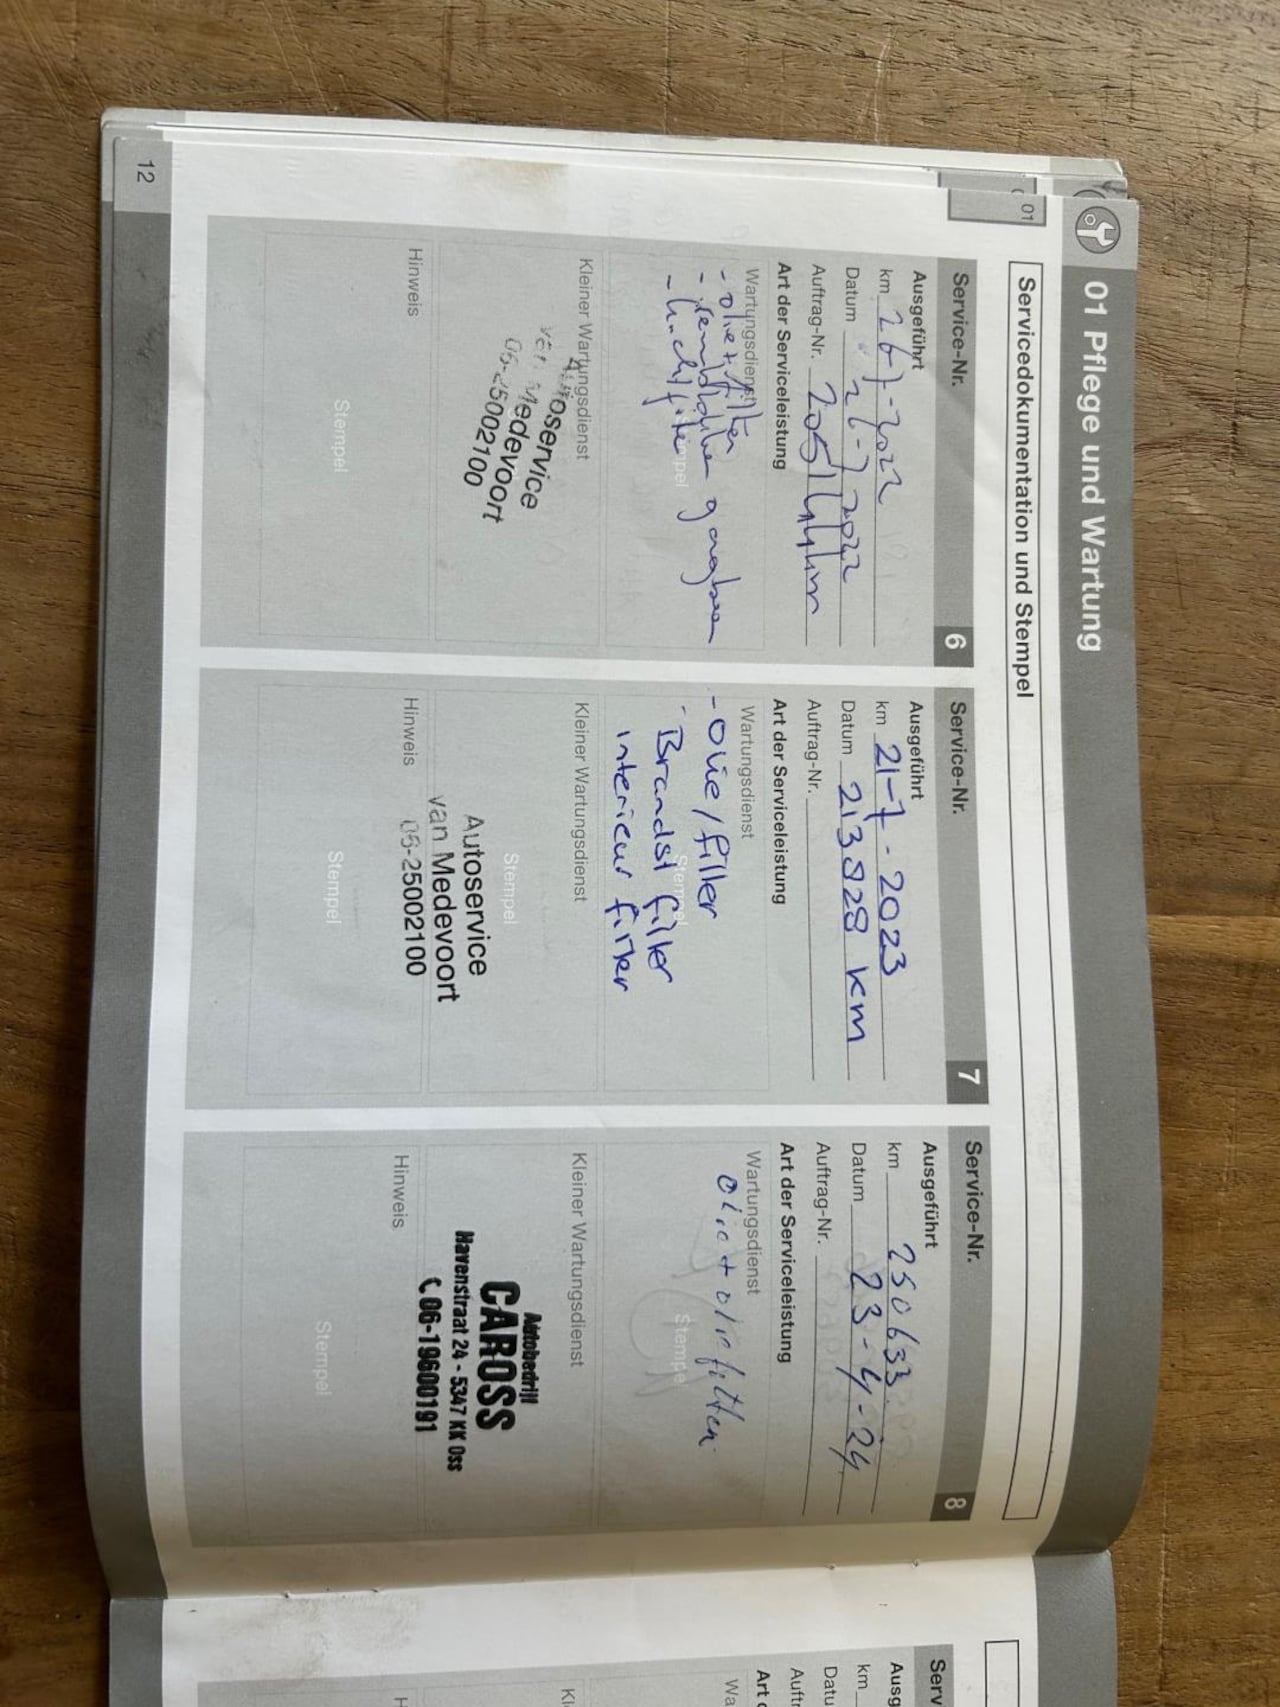 01 Pflege und Wartung
Servicedokumentation und Stempel
01
Service-Nr. 6
Ausgeführt
km 26-7-2022
Datum 26-7 2022
Auftrag-Nr. 205144km
Art der Serviceleistung
Wartungsdienst
- olie+filter
- remblokken
- luchtfilter
Stempel
Kleiner Wartungsdienst
Autoservice
van Medevoort
06-25002100
Hinweis
Stempel
Service-Nr. 7
Ausgeführt
km 21-7-2023
Datum 213828 km
Auftrag-Nr.
Art der Serviceleistung
Wartungsdienst
- olie/filter
- Brandst filter
interieur filter
Stempel
Kleiner Wartungsdienst
Stempel
Autoservice
van Medevoort
06-25002100
Hinweis
Stempel
Service-Nr. 8
Ausgeführt
km 250633
Datum 23-4-24
Auftrag-Nr.
Art der Serviceleistung
Wartungsdienst
olie + olie filter
Stempel
Kleiner Wartungsdienst
Autobedrijf
CAROSS
Havenstraat 24 - 5347 KK Oss
06-19600191
Hinweis
Stempel
12
Serv
Ausg
km
Datu
Auftr
Art d
Wa
Kl
H